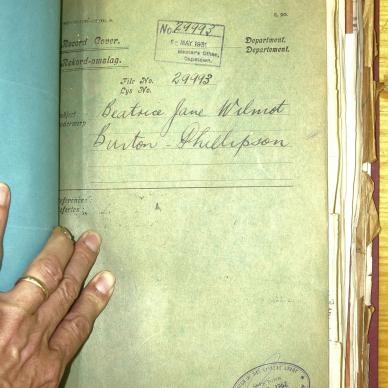 No. 29993
MAY 1931
Master's Office,
Capetown.
Record Cover.
Rekord-omslag.
Department.
Departement.
File No. 29993
Lys No.
Subject
Beatrice Jane Wilmot
Burton - Phillipson